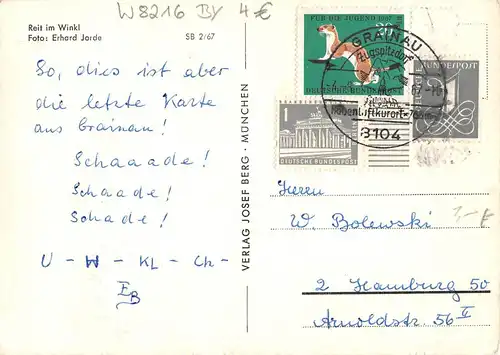 W8216 BY 4€
Reit im Winkl
Foto: Erhard Jorde
SB 2/67
So, dies ist aber
die letzte Karte
aus Grainau!
Schaaade!
Schaade!
Schade!
U - W - KL - Ch -
EB
VERLAG JOSEF BERG · MÜNCHEN
FÜR DIE JUGEND 1967
20
DEUTSCHE BUNDESPOST
1
DEUTSCHE BUNDESPOST
BUNDESPOST
GRAINAU
Zugspitzdorf
Höhenluftkurort
8104
Herrn
W. Bolewski
1,-€
2 Hamburg 50
Arnoldstr. 56 II